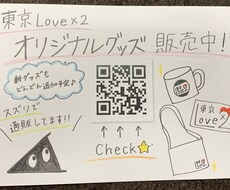 東京Love×2
オリジナルグッズ 販売中!
新グッズも
どんどん追加予定♪
スズリで
通販してます!!
Check
東京
Love×2